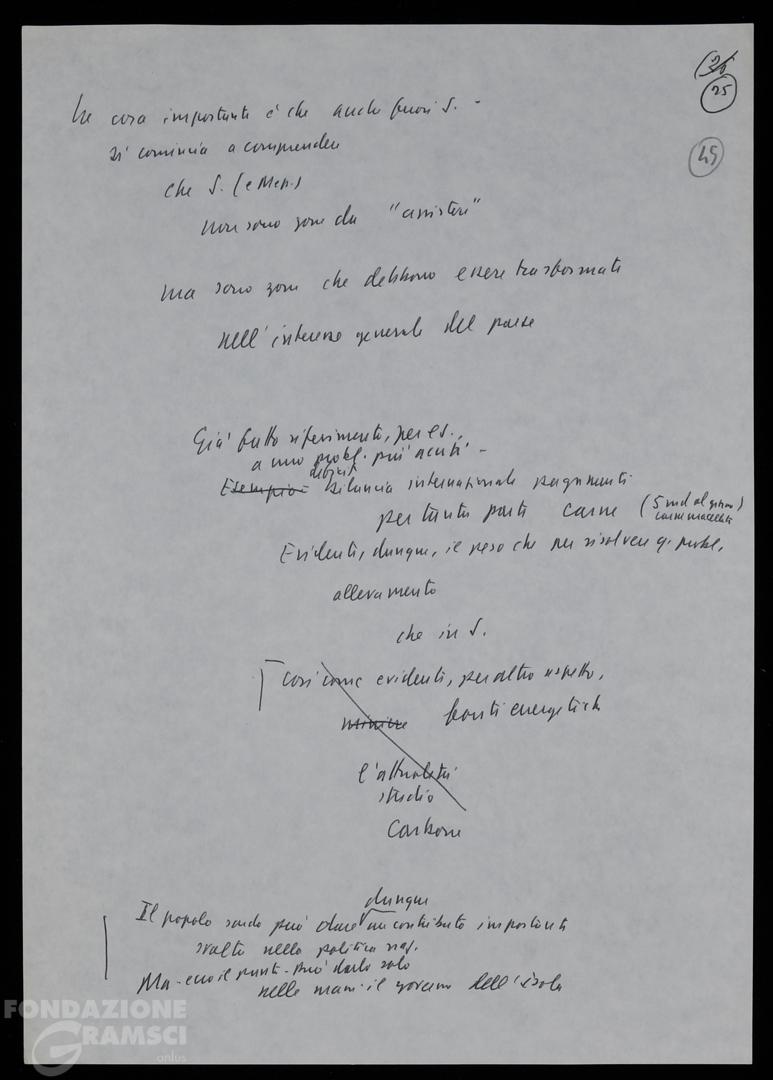 25
45
La cosa importante è che anche fuori S. -
si comincia a comprendere
che S. (e Mer.)
non sono zone da "assistere"
ma sono zone che debbono essere trasformate
nell'interesse generale del paese
Già fatto riferimento, per es.,
a uno probl. più acuti -
Esempio: deficit bilancia internazionale pagamenti
per tanta parte carne (5 md al giorno)
carne macellata
Evidente, dunque, il peso che per risolvere q. probl.
allevamento
che in S.
Così come evidente, per altro aspetto,
miniere fonti energetiche
l'attualità
studio
Carbone
Il popolo sardo può dare dunque un contributo importante
svolta nella politica naz.
Ma - ecco il punto - può darlo solo
nelle mani il governo dell'isola
FONDAZIONE
GRAMSCI
onlus